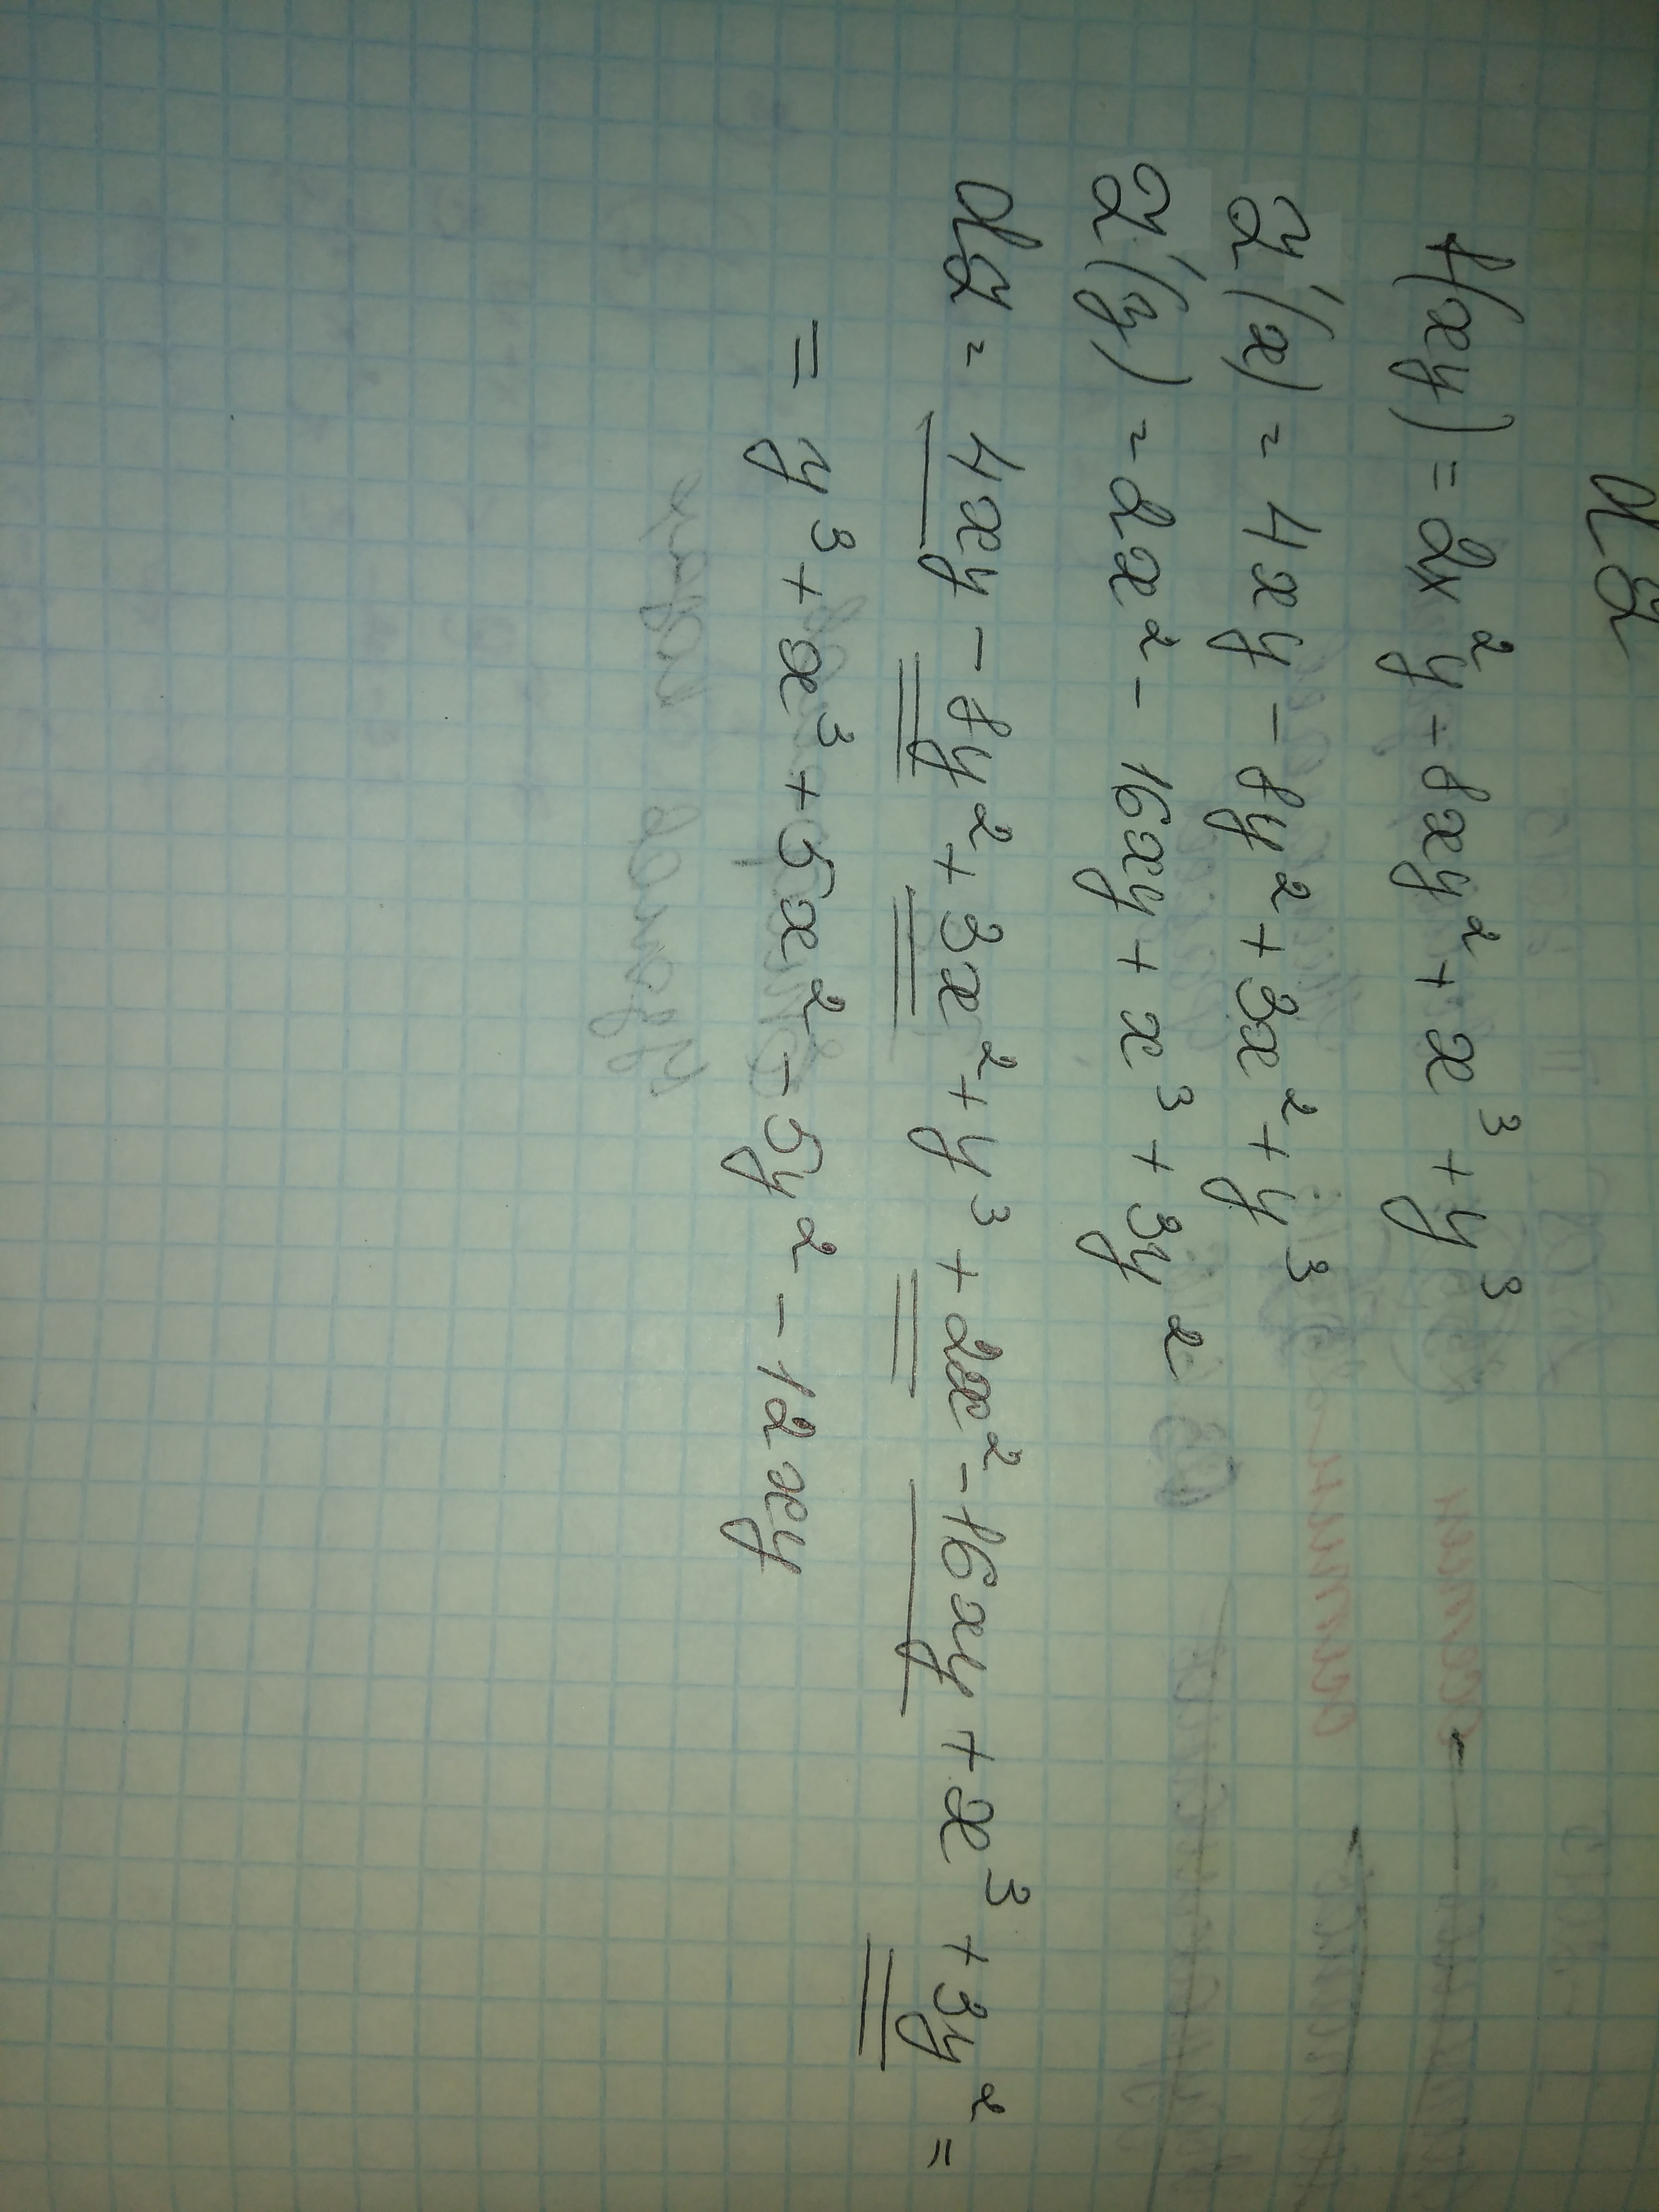 dz
f(xy) = 2x²y - 8xy² + x³ + y³
z'(x) = 4xy - 8y² + 3x² + y³
z'(y) = 2x² - 16xy + x³ + 3y²
dz = 4xy - 8y² + 3x² + y³ + 2x² - 16xy + x³ + 3y² =
= y³ + x³ + 5x² - 5y² - 12xy